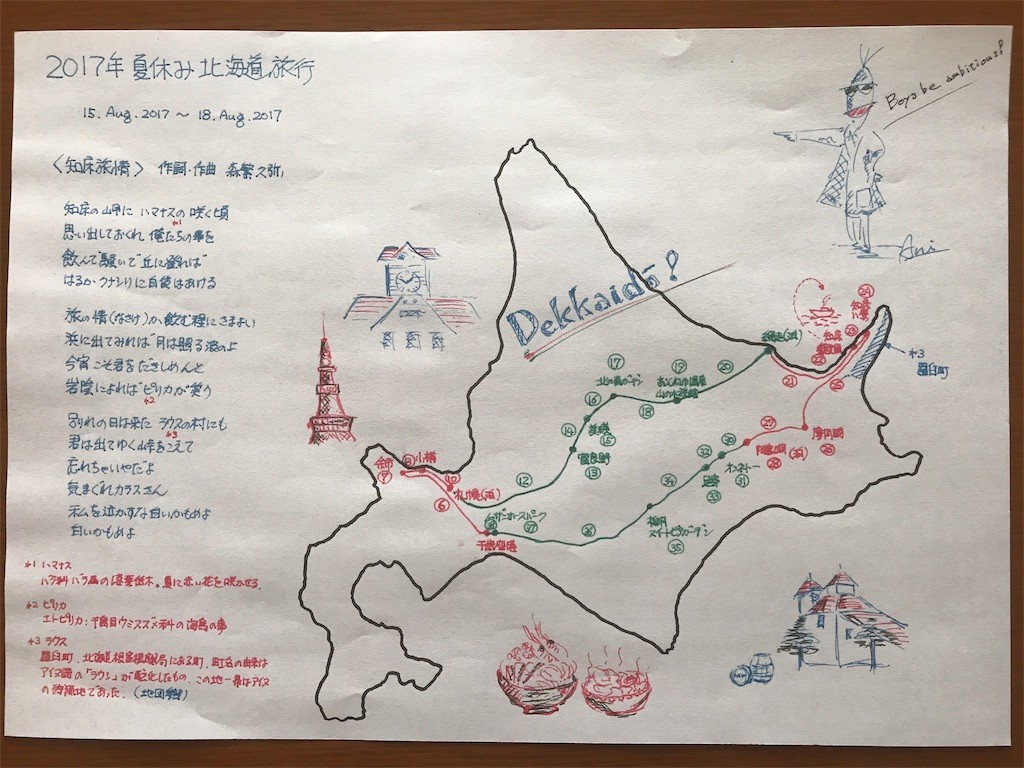 2017年 夏休み 北海道 旅行
15. Aug. 2017 ～ 18. Aug. 2017
〈知床旅情〉 作詞・作曲 森繁久弥
知床の岬に ハマナスの 咲く頃
*1
思い出しておくれ 俺たちの事を
飲んで騒いで 丘に登れば
はるか クナシリに 白夜はあける
旅の情(なさけ)か 飲む程にさまよい
浜に出てみれば 月は照る波の上
今宵こそ君を だきしめんと
岩陰によれば ピリカが笑う
*2
別れの日は来た ラウスの村にも
*3
君は出てゆく 峠をこえて
忘れちゃいやだよ
気まぐれカラスさん
私を泣かすな 白いかもめよ
白いかもめよ
*1 ハマナス
バラ科 バラ属の落葉低木。夏に赤い花を咲かせる。
*2 ピリカ
エトピリカ：千鳥目ウミスズメ科の海鳥の事
*3 ラウス
羅臼町。北海道根室振興局にある町。町名の由来は
アイヌ語の「ラウシ」が変化したもの。この地一帯はアイヌ
の狩猟地であった。(地図参照)
Boys be ambitious!
Ani
Dekkaidō!
㉔
知床
㉓
知床
㉒
*3
羅臼町
㉑
㉕
網走(泊)
⑰
⑲
⑳
北の嵐ガーデン
おんねゆ温泉
山の水族館
⑯
⑱
⑭
美瑛
⑮
富良野
⑬
⑫
余市
⑦
⑧
小樽
⑩
札幌(泊)
⑥
千歳空港
ノーザンホースパーク
㊳
㊲
㊱
㉞
柳月
スイートピアガーデン
㉟
㉜
㉚
オンネトー
㉛
足寄
㉝
㉙
阿寒湖(泊)
㉘
摩周湖
㉖